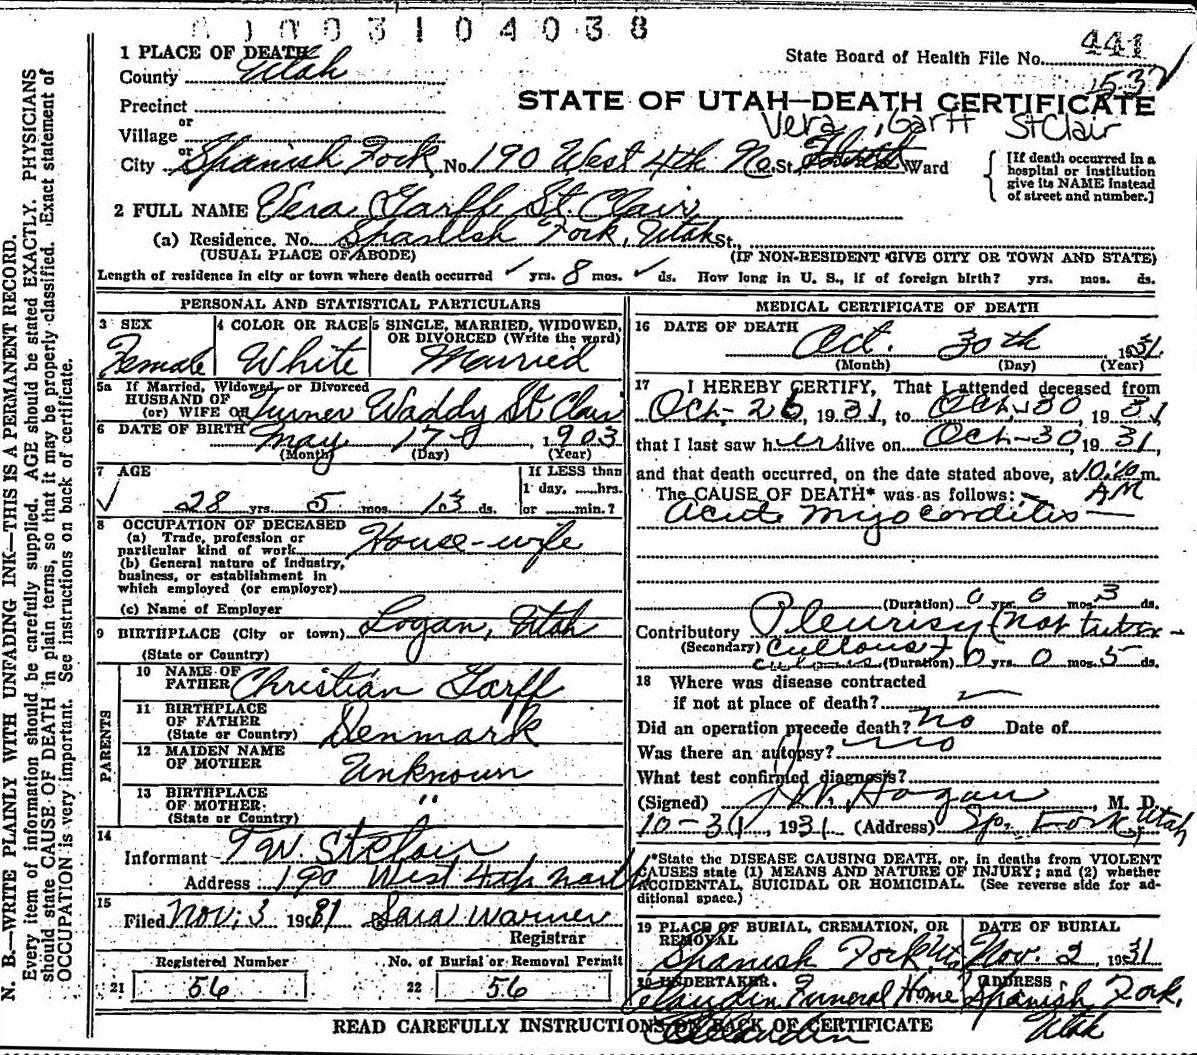 0 1 0 0 3 1 0 4 0 3 8
1 PLACE OF DEATH
State Board of Health File No. 441
County Utah
1537
Precinct
STATE OF UTAH—DEATH CERTIFICATE
or
Village
Vera Garff StClair
or
City Spanish Fork No. 190 West 4th No. St. Ward
[If death occurred in a hospital or institution give its NAME instead of street and number.]
2 FULL NAME Vera Garff St. Clair
(a) Residence. No. Spanish Fork, Utah St.,
(USUAL PLACE OF ABODE) (IF NON-RESIDENT GIVE CITY OR TOWN AND STATE)
Length of residence in city or town where death occurred ✓ yrs. 8 mos. ✓ ds. How long in U. S., if of foreign birth? yrs. mos. ds.
PERSONAL AND STATISTICAL PARTICULARS
3 SEX 4 COLOR OR RACE 5 SINGLE, MARRIED, WIDOWED, OR DIVORCED (Write the word)
Female White Married
5a If Married, Widowed, or Divorced
HUSBAND OF
(or) WIFE OF Turner Waddy St Clair
6 DATE OF BIRTH May 17 1903
(Month) (Day) (Year)
7 AGE If LESS than
1 day, ......hrs.
✓ 28 yrs 5 mos. 13 ds. or ......min.?
8 OCCUPATION OF DECEASED
(a) Trade, profession or
particular kind of work House-wife
(b) General nature of industry,
business, or establishment in
which employed (or employer)
(c) Name of Employer
9 BIRTHPLACE (City or town) Logan, Utah
(State or Country)
PARENTS
10 NAME OF
FATHER Christian Garff
11 BIRTHPLACE
OF FATHER
(State or Country) Denmark
12 MAIDEN NAME
OF MOTHER Unknown
13 BIRTHPLACE
OF MOTHER "
(State or Country)
14
Informant T W. St clair
Address 190 West 4th North
15
Filed Nov. 3 1931 Sara Warner
Registrar
Registered Number No. of Burial or Removal Permit
21 56 22 56
MEDICAL CERTIFICATE OF DEATH
16 DATE OF DEATH Oct. 30th 1931
(Month) (Day) (Year)
17 I HEREBY CERTIFY, That I attended deceased from
Oct-26, 1931, to Oct-30 1931
that I last saw her alive on Oct-30, 1931,
and that death occurred, on the date stated above, at 10:10 m.
AM
The CAUSE OF DEATH* was as follows:
acute myocarditis —
(Duration) 0 yrs. 0 mos. 3 ds.
Contributory Pleurisy (not tuber-
(Secondary) culous)
(Duration) 0 yrs. 0 mos. 5 ds.
18 Where was disease contracted
if not at place of death?
Did an operation precede death? no Date of
Was there an autopsy? no
What test confirmed diagnosis?
(Signed) J. W. Hagan, M. D.
10-31, 1931 (Address) Sp. Fork, Utah
*State the DISEASE CAUSING DEATH, or, in deaths from VIOLENT
CAUSES state (1) MEANS AND NATURE OF INJURY; and (2) whether
ACCIDENTAL, SUICIDAL OR HOMICIDAL. (See reverse side for ad-
ditional space.)
19 PLACE OF BURIAL, CREMATION, OR REMOVAL DATE OF BURIAL
Spanish Fork Ut. Nov. 2 1931
20 UNDERTAKER. ADDRESS
Claudin Funeral Home Spanish Fork, Utah
READ CAREFULLY INSTRUCTIONS ON BACK OF CERTIFICATE
N. B.—WRITE PLAINLY WITH UNFADING INK—THIS IS A PERMANENT RECORD.
Every item of information should be carefully supplied. AGE should be stated EXACTLY. PHYSICIANS
should state CAUSE OF DEATH in plain terms, so that it may be properly classified. Exact statement of
OCCUPATION is very important. See instructions on back of certificate.